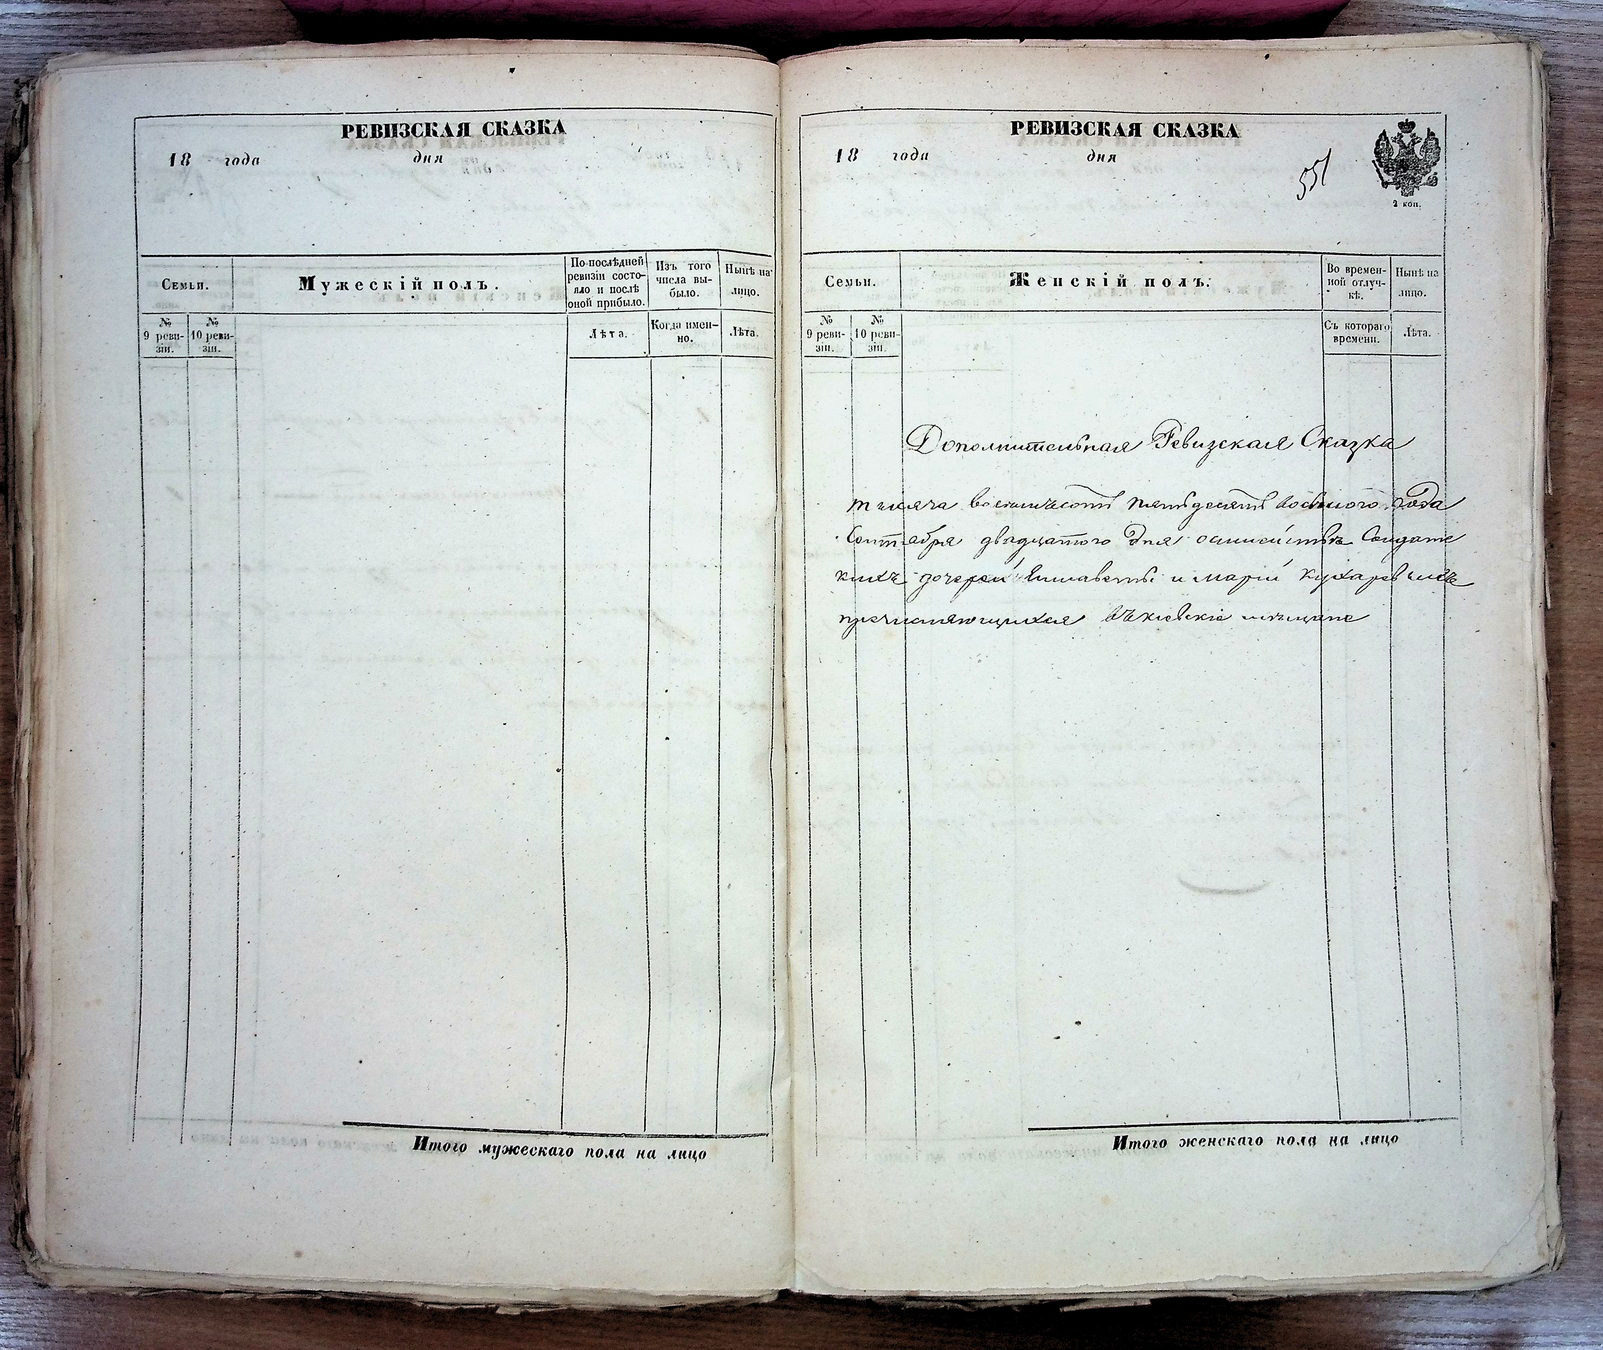 РЕВИЗСКАЯ СКАЗКА
18 года дня
Семьи.
Мужескій полъ.
По послѣдней ревизіи состояло и послѣ оной прибыло.
Изъ того числа выбыло.
Нынѣ на лицо.
№ 9 ревизіи.
№ 10 ревизіи.
Лѣта.
Когда именно.
Лѣта.
Итого мужескаго пола на лицо
РЕВИЗСКАЯ СКАЗКА
18 года дня
551
2 коп.
Семьи.
Женскій полъ.
Во временной отлучкѣ.
Нынѣ на лицо.
№ 9 ревизіи.
№ 10 ревизіи.
Съ котораго времени.
Лѣта.
Дополнительная Ревизская Сказка
тысяча восемьсотъ пятьдесятъ восьмого года
Сентября двадцатого дня о семействѣ Солдатс
кихъ дочерей Елисаветы и Маріи Кухаревичевъ
причисляющихся въ кіевскіе мѣщане
Итого женскаго пола на лицо